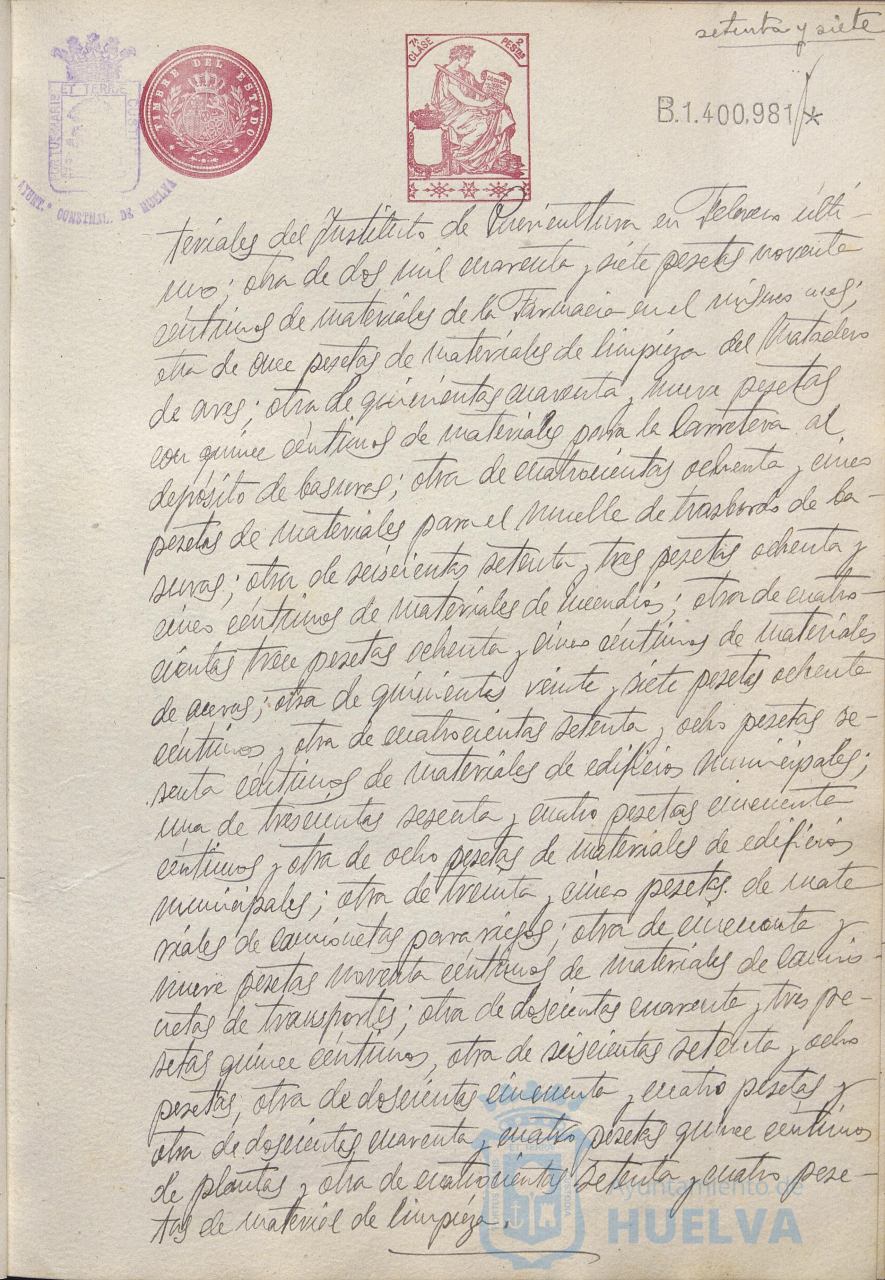 setenta y siete
PORTUS MARIS ET TERRAE CUSTODIA
AYUNT.º CONSTNAL. DE HUELVA
TIMBRE DEL ESTADO
7ª CLASE
2 PESTAS
B.1.400,981*
teriales del Instituto de Puericultura en Febrero últi-
mo; otra de dos mil cuarenta y siete pesetas noventa
céntimos de materiales de la Farmacia en el mismo mes;
otra de once pesetas de materiales de limpieza del Matadero
de aves; otra de quinientas cuarenta y nueve pesetas
con quince céntimos de materiales para la Carretera al
depósito de basuras; otra de cuatrocientas ochenta y cinco
pesetas de materiales para el muelle de trasbordo de ba-
suras; otra de seiscientas setenta y tres pesetas ochenta y
cinco céntimos de materiales de Incendios; otra de cuatro-
cientas trece pesetas ochenta y cinco céntimos de materiales
de aceras; otra de quinientas veinte y siete pesetas ochenta
céntimos y otra de cuatrocientas setenta y ocho pesetas se-
senta céntimos de materiales de edificios municipales;
una de trescientas sesenta y cuatro pesetas cincuenta
céntimos y otra de ocho pesetas de materiales de edificios
municipales; otra de treinta y cinco pesetas de mate
riales de camionetas para riegos; otra de cincuenta y
nueve pesetas noventa céntimos de materiales de camio-
netas de transportes; otra de doscientas cuarenta y tres pe-
setas quince céntimos, otra de seiscientas setenta y ocho
pesetas, otra de doscientas cincuenta y cuatro pesetas y
otra de doscientas cuarenta y cuatro pesetas quince céntimos
de plantas y otra de cuatrocientas setenta y cuatro pese-
tas de material de limpieza.
Ayuntamiento de
HUELVA